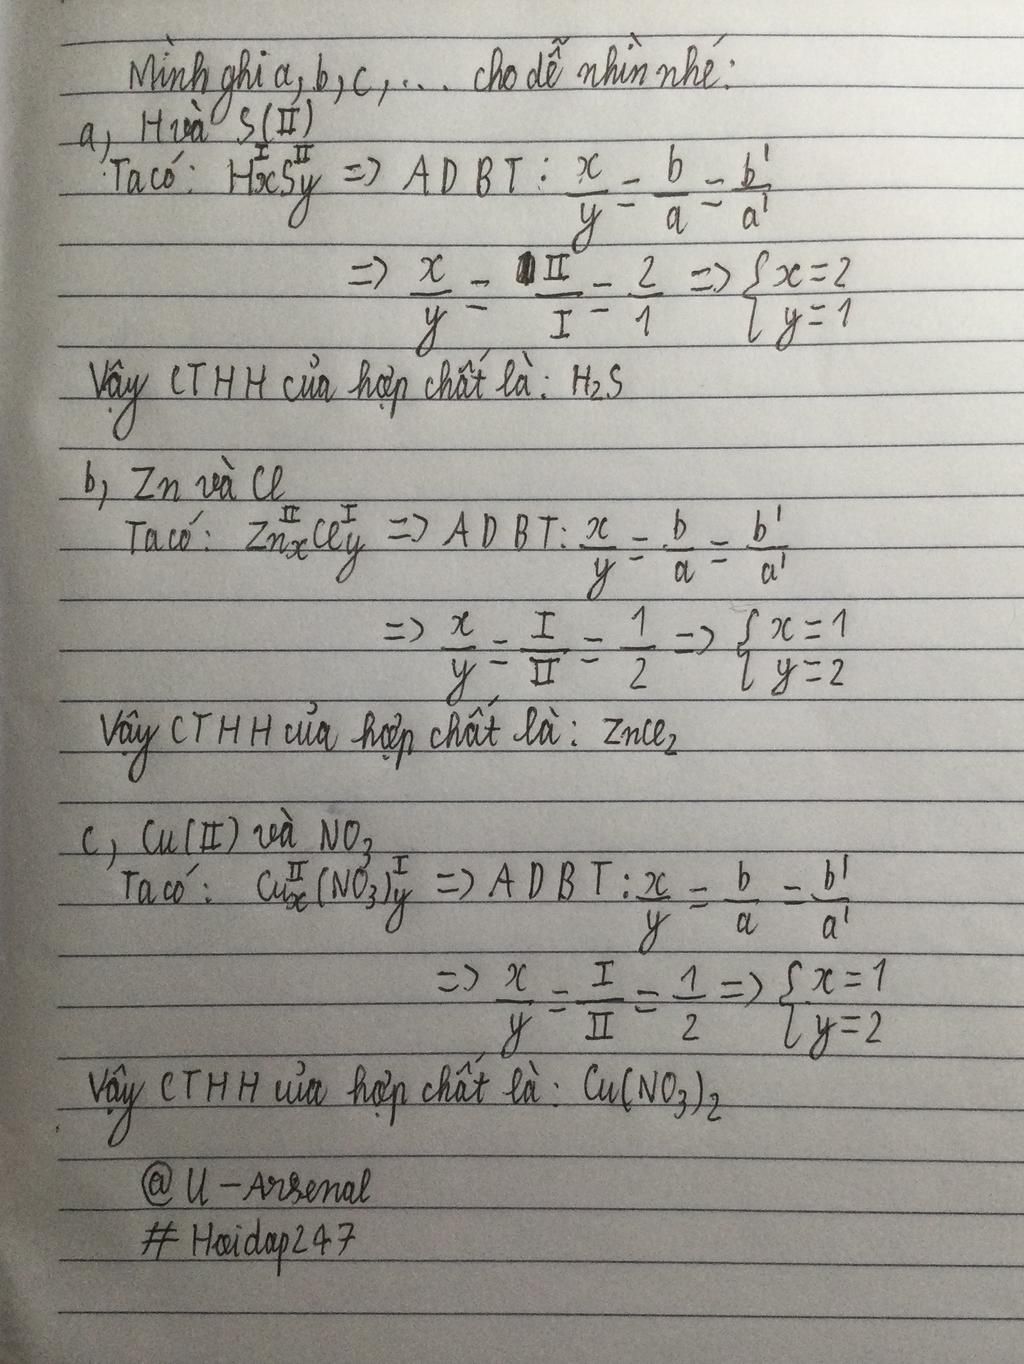 Mình ghi a, b, c, ... cho dễ nhìn nhé:
a, H và S(II)
Ta có: HxᴵSyᴵᴵ => ADBT: x/y = b/a = b'/a'
=> x/y = II/I = 2/1 => { x = 2 y = 1
Vậy CTHH của hợp chất là: H₂S
b, Zn và Cl
Ta có: ZnxᴵᴵClyᴵ => ADBT: x/y = b/a = b'/a'
=> x/y = I/II = 1/2 => { x = 1 y = 2
Vậy CTHH của hợp chất là: ZnCl₂
c, Cu(II) và NO₃
Ta có: Cuxᴵᴵ(NO₃)yᴵ => ADBT: x/y = b/a = b'/a'
=> x/y = I/II = 1/2 => { x = 1 y = 2
Vậy CTHH của hợp chất là: Cu(NO₃)₂
@U-Arsenal
#Hoidap247